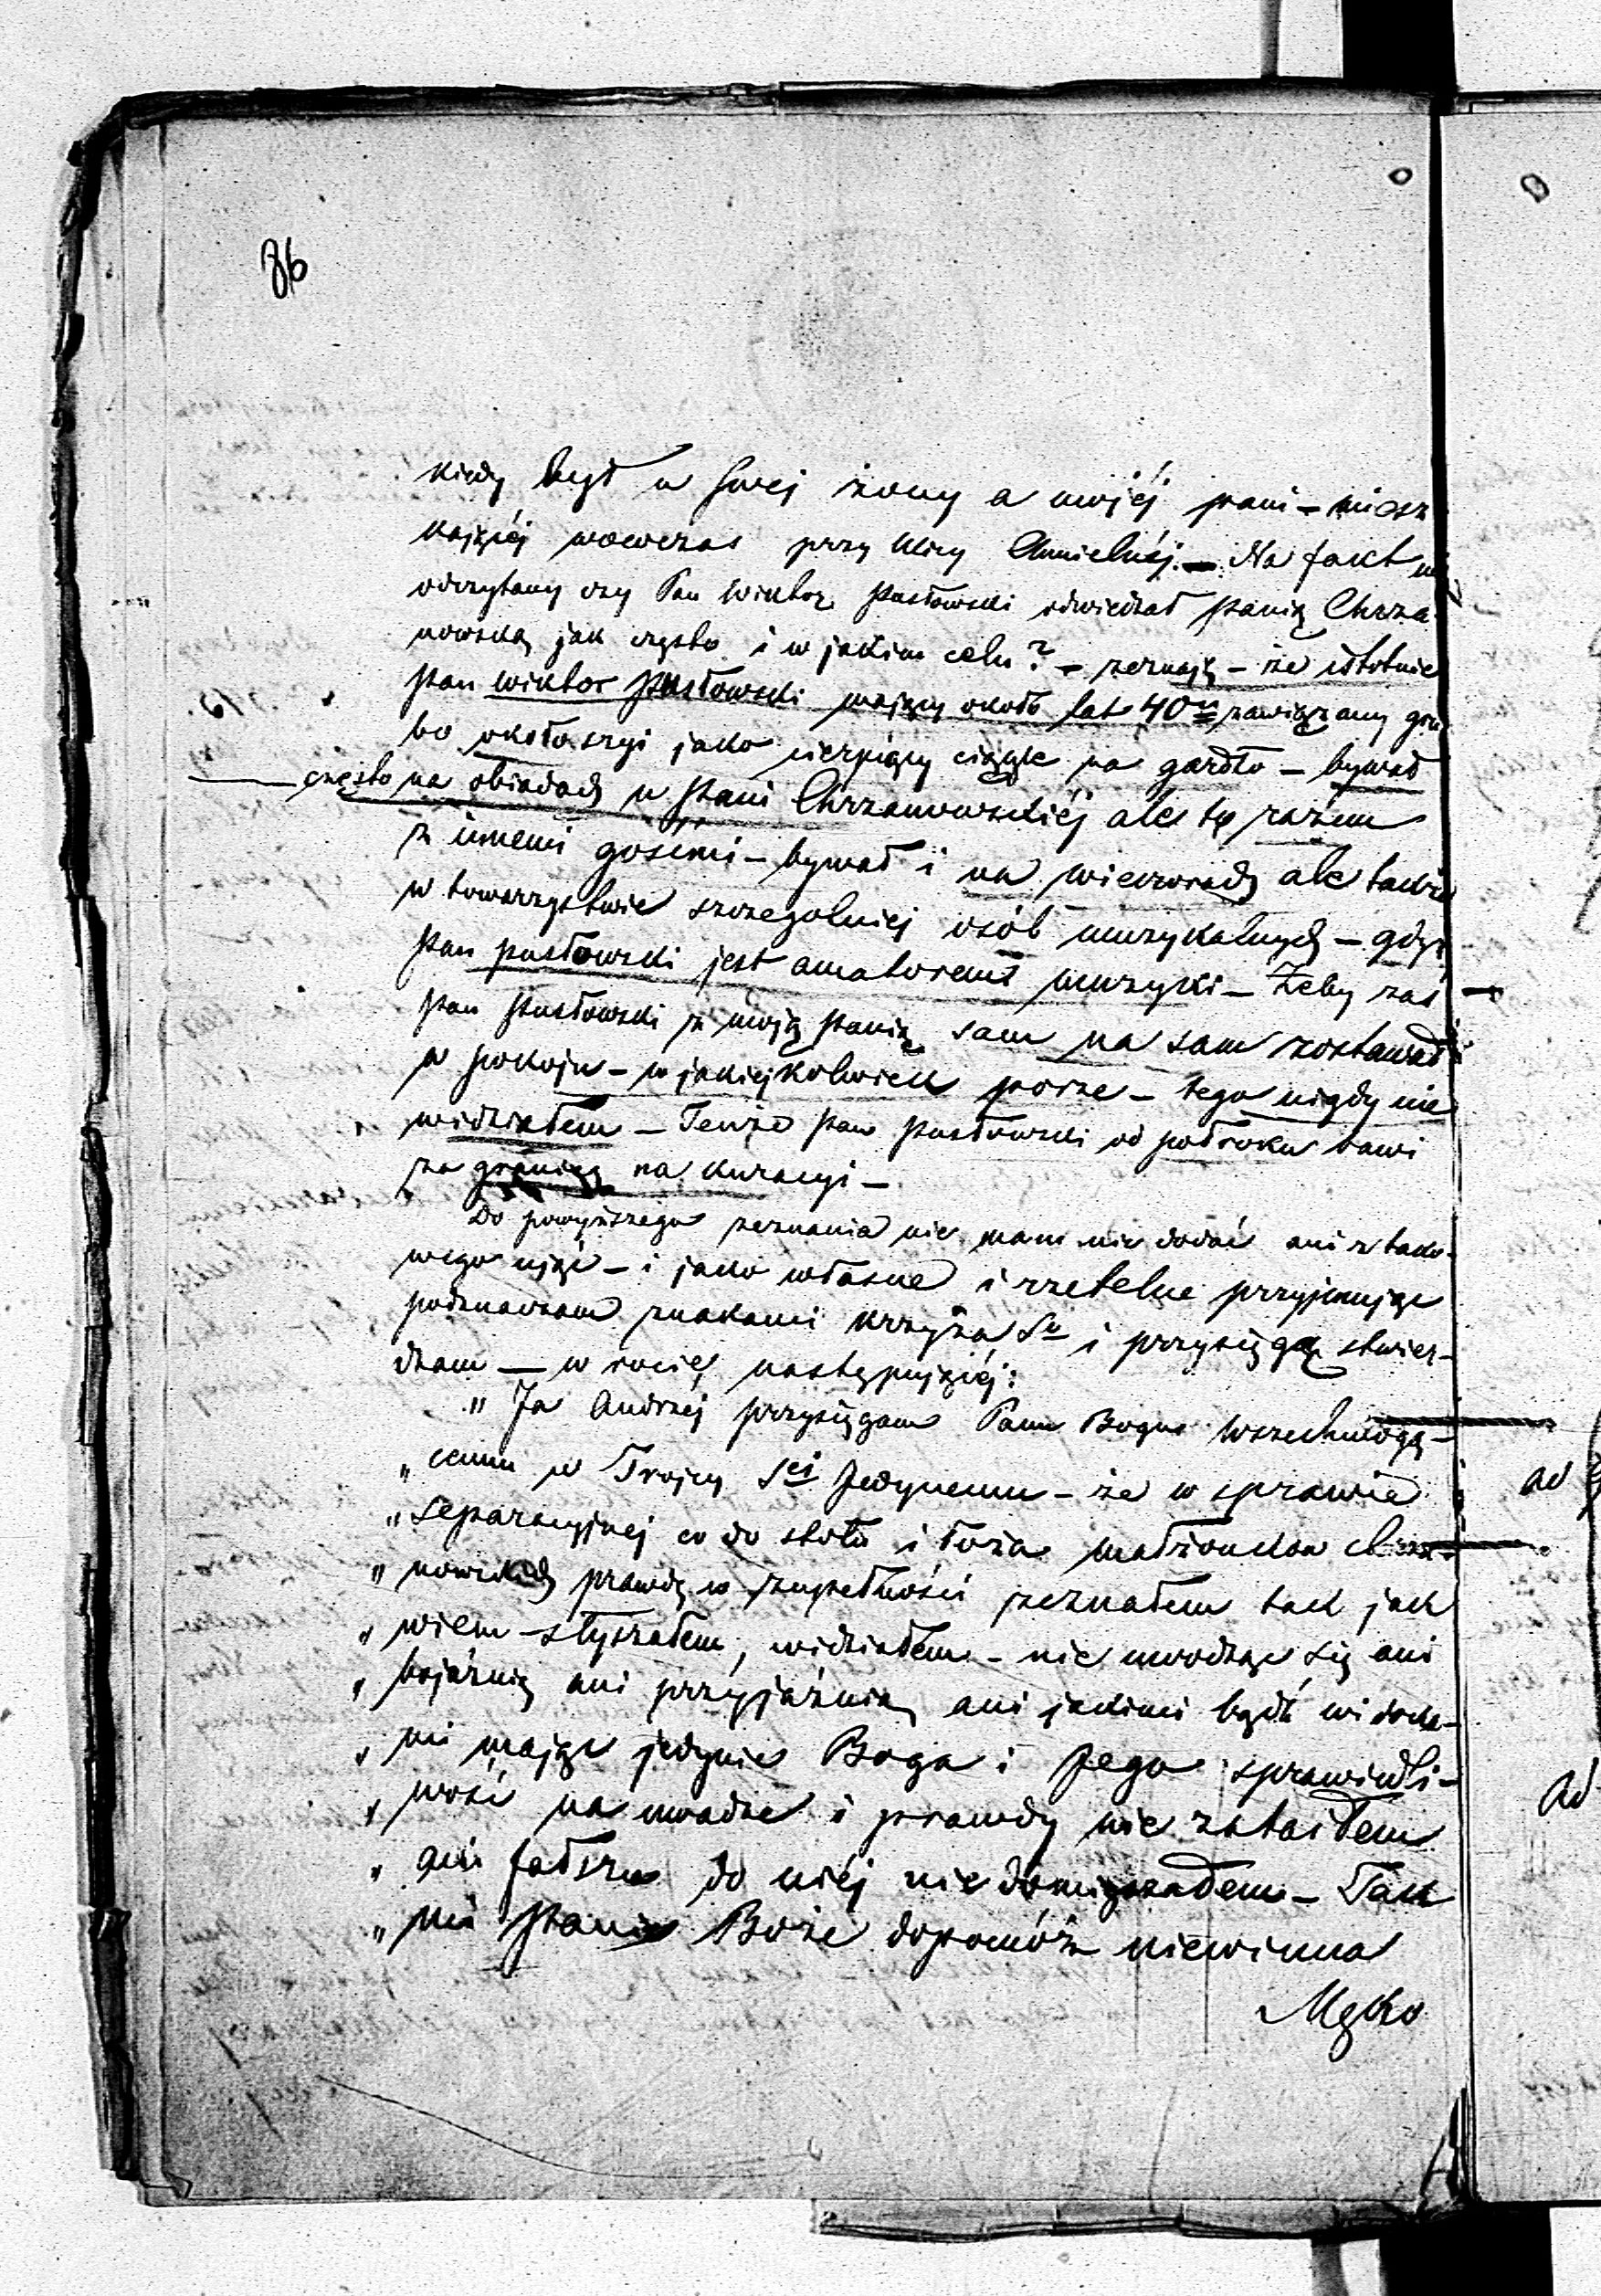 86
kiedy był u swej żony a mojéj pani – miesz
kającéj wowczas przy Ulicy Chmielnéj. – Na fakt
odczytany czy Pan Wiktor Pusłowski odwiedzał Panią Chrza-
nowską jak często i w jakim celu? – zeznaję – że istotnie
Pan Wiktor Pusłowski mający około lat 40u zawiązany gru
bo około szyi jako cierpiący ciągle na gardło – bywał
często na obiadach u Pani Chrzanowskiéj ale to razem
z innemi gośćmi – bywał i na wieczorach ale także
w towarzystwie szczególniej osób muzykalnych – gdyż
Pan Pusłowski jest amatorem muzyki – Żeby zaś
Pan Pusłowski z moją Panią sam na sam zostawał
w pokoju – w jakiejkolwiek porze – tego nigdy nie
widziałem – Tenże Pan Pusłowski od półroku bawi
za granicą na kuracyi –
Do powyższego zeznania nic mam nie dodać ani z tako-
wego ująć – i jako własne i rzetelne przyjmując
podznaczam znakami krzyża Sgo i przysięgą stwier-
dzam — w rocie następującéj:
„ Ja Andrzéj przysięgam Panu Bogu wszechmogą-
„ cemu w Trojcy Sej Jedynemu – że w sprawie
„ separacyjnej co do stołu i łoża małżonków Chrza-
„ nowskich prawdę w zupełności zeznałem tak jak
„ wiem – słyszałem, widziałem – nie uwodząc się ani
„ bojaźnią ani przyjaźnią ani jakimi bądź widoka-
„ mi mając jedynie Boga i Jego sprawiedli-
„ wość na uwadze i prawdy nie zataiłem
„ ani fałszu do niéj nie domięszałem – Tak
„ mi Panie Boże dopomóż niewinna
Męko
ad
ad